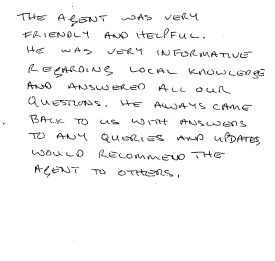 THE AGENT WAS VERY
FRIENDLY AND HELPFUL.
HE WAS VERY INFORMATIVE
REGARDING LOCAL KNOWLEDGE
AND ANSWERED ALL OUR
QUESTIONS. HE ALWAYS CAME
BACK TO US WITH ANSWERS
TO ANY QUERIES AND UPDATES,
WOULD RECOMMEND THE
AGENT TO OTHERS.